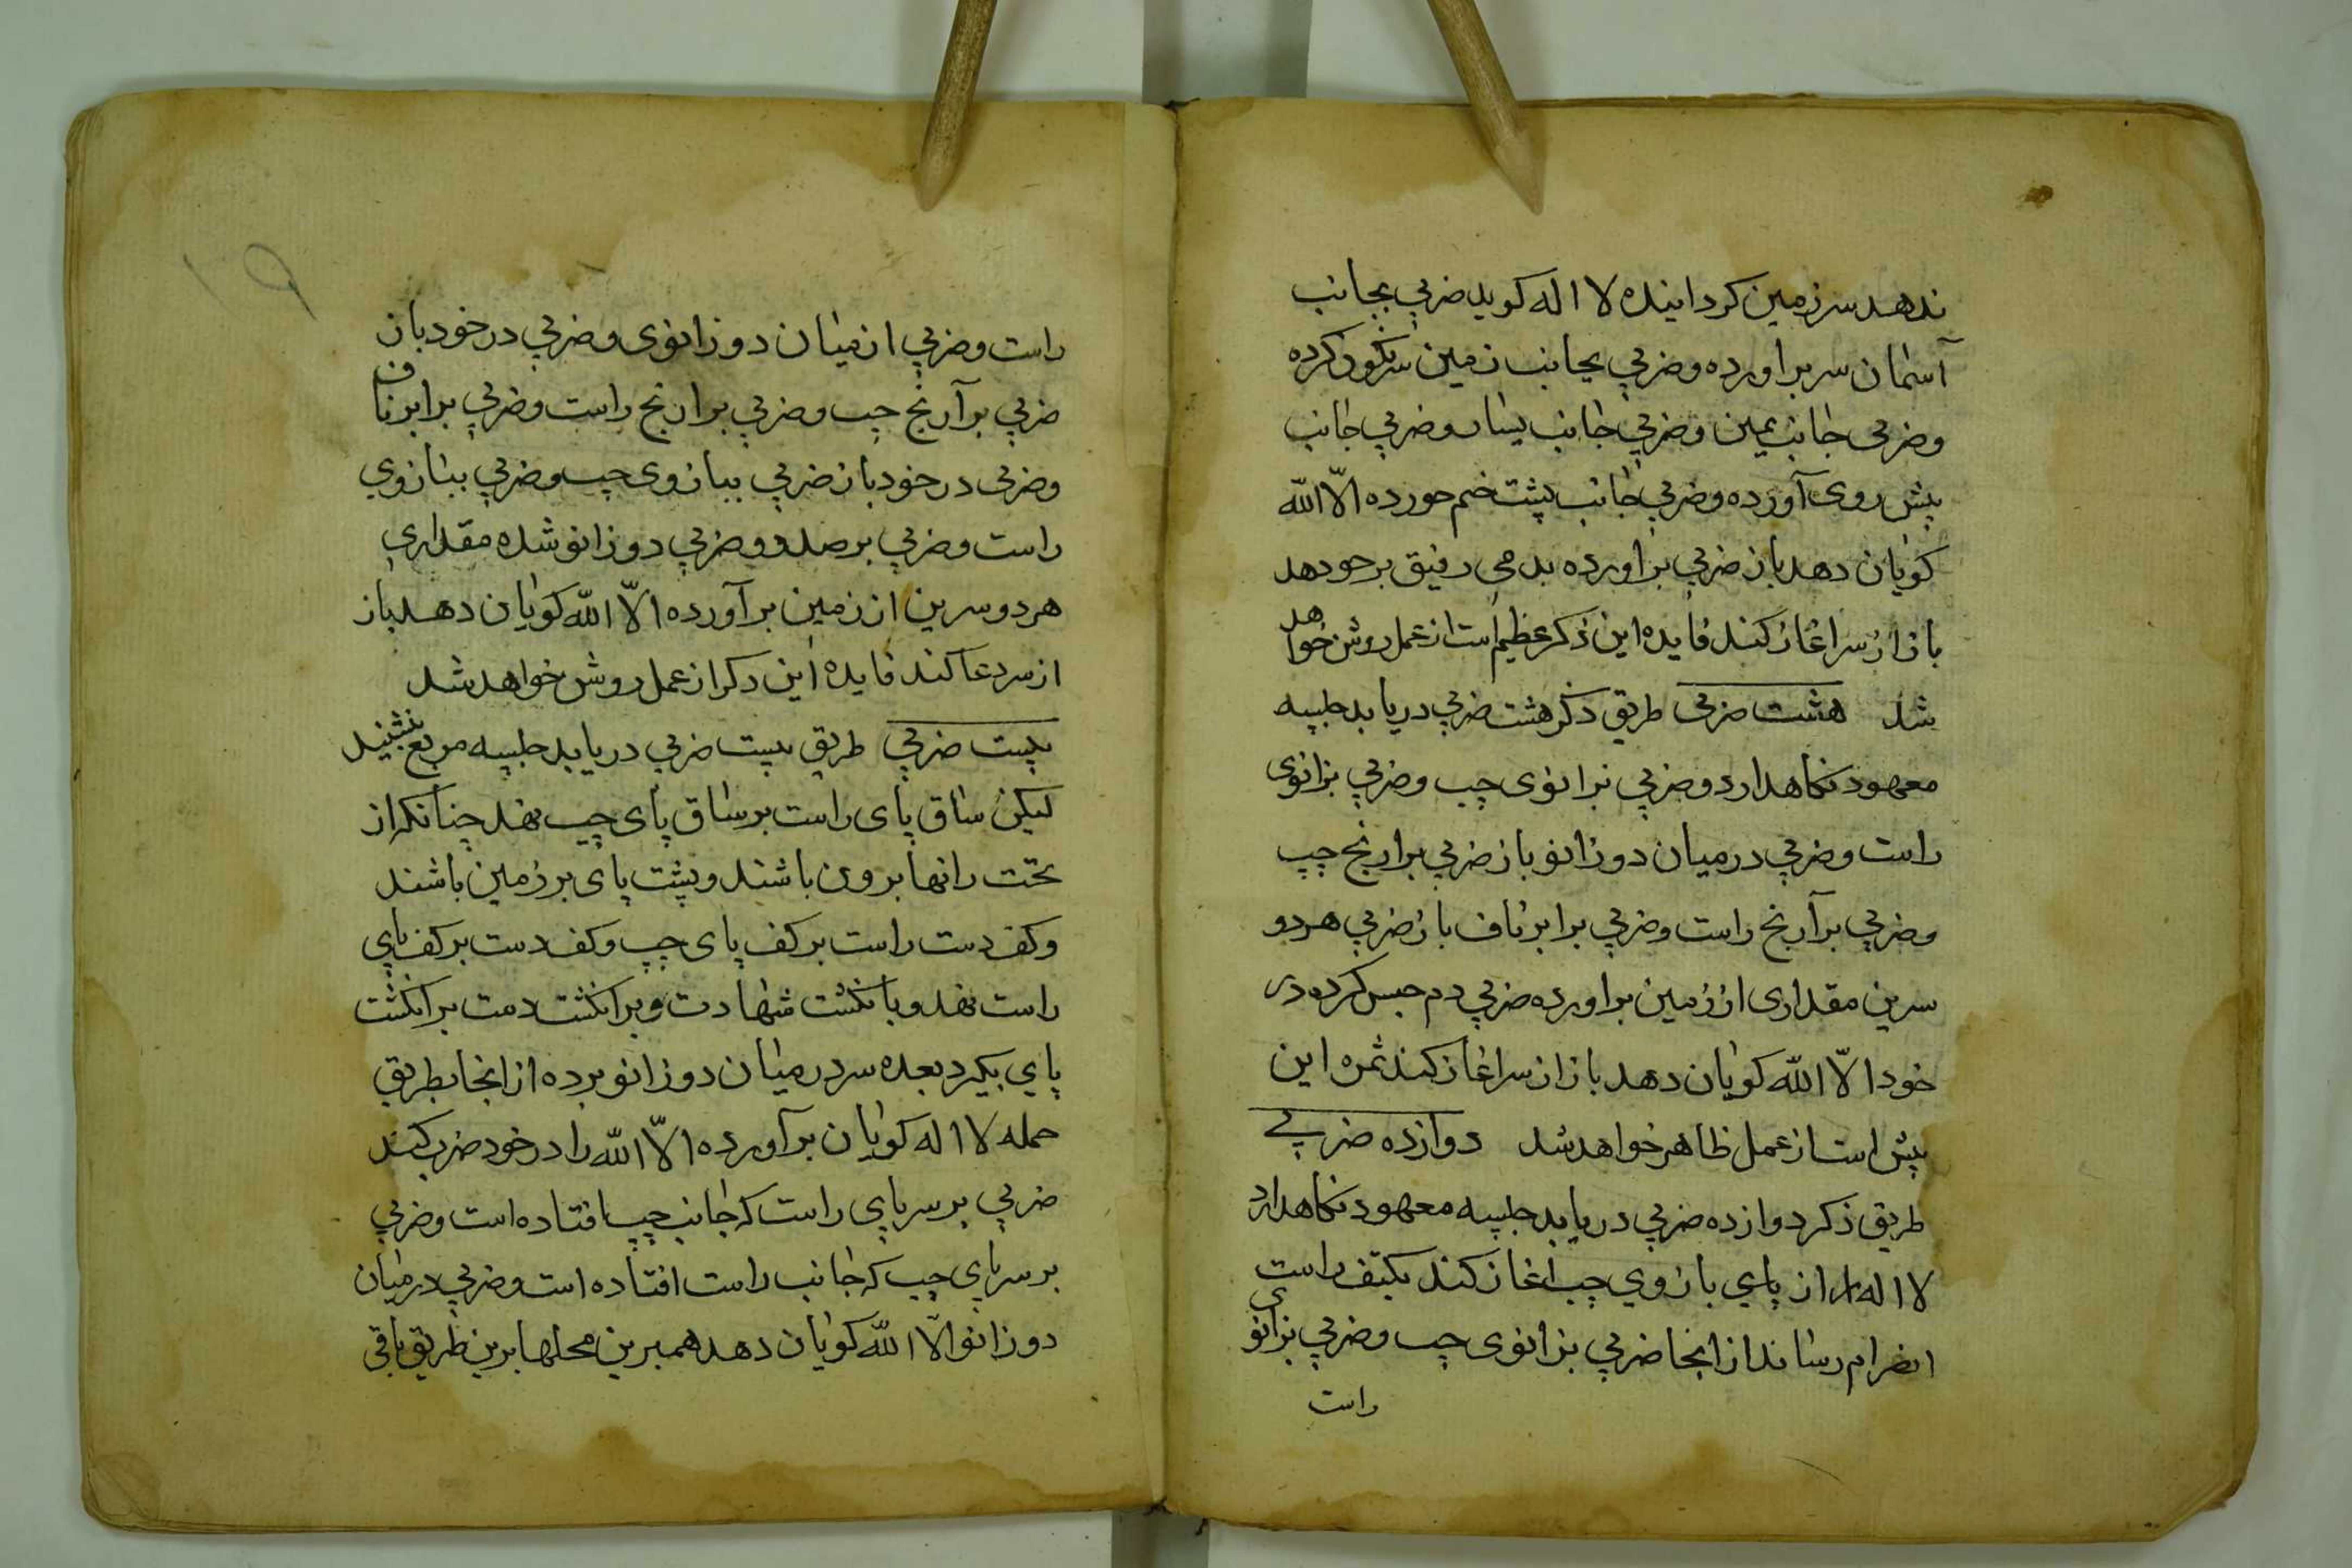 ندهد سر زمین کردانیده لا اله کوید ضربی بجانب
آسمان سر براورده وضربی بجانب زمین سرنکون کرده
وضربی جانب یمین وضربی جانب یسار وضربی جانب
پیش روی آورده وضربی جانب پشت خم خورده الّا الله
کویان دهد باز ضربی براورده بدمی رفیق بر خود دهد
باز از سر اغاز کند فایده این ذکر عظیم است از عمل روشن خواهد
شد هشت ضربی طریق ذکر هشت ضربی دریابد جلسه
معهود نکاهدارد وضربی بزانوی چپ وضربی بزانوی
راست وضربی درمیان دو زانو باز ضربی برارنج چپ
وضربی برآرنج راست وضربی برابر ناف باز ضربی هر دو
سرین مقداری از زمین براورده ضربی دم حبس کرده در
خود الّا الله کویان دهد باز از سر اغاز کند ثمره این
پیش است از عمل ظاهر خواهد شد دوازده ضربی
طریق ذکر دوازده ضربی دریابد جلسه معهود نکاهدارد
لا اله از پای بازوی چپ اغاز کند بکتف راست
انصرام رساند از انجا ضربی بزانوی چپ وضربی بزانوی
راست
راست وضربی از میان دو زانوی وضربی در خود باز
ضربی برآرنج چپ وضربی برارنج راست وضربی برابر ناف
وضربی در خود باز ضربی ببازوی چپ وضربی ببازوی
راست وضربی بر صدر وضربی دو زانو شده مقداری
هر دو سرین از زمین برآورده الّا الله کویان دهد باز
از سر دعا کند فایده این ذکر از عمل روشن خواهد شد
بیست ضربی طریق بیست ضربی دریابد جلسه مربع نشیند
لیکن ساق پای راست بر ساق پای چپ نهد چنانکه از
تحت رانها برون باشند و پشت پای بر زمین باشند
وکف دست راست بر کف پای چپ وکف دست بر کف پای
راست نهد و بانکشت شهادت و برانکشت دست برانکشت
پای بکیرد بعده سر درمیان دو زانو برده از انجا بطریق
حمله لا اله کویان برآورده الّا الله را در خود ضرب کند
ضربی بر سر پای راست که جانب چپ افتاده است وضربی
بر سر پای چپ که جانب راست افتاده است وضربی درمیان
دو زانو الّا الله کویان دهد همبرین محلها برین طریق باقی